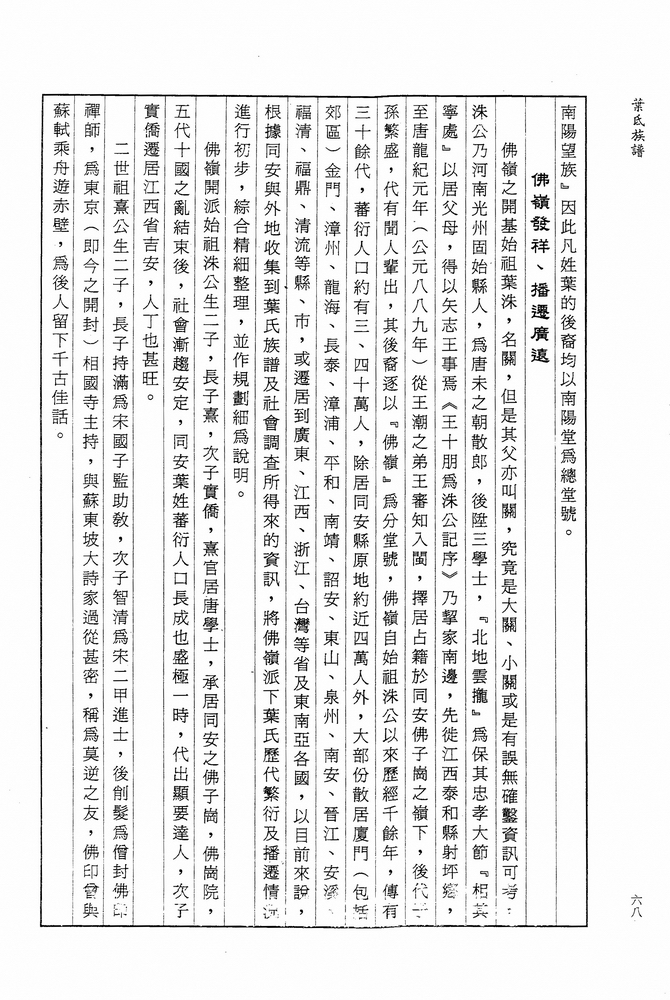 葉氏族譜
南陽望族』因此凡姓葉的後裔均以南陽堂爲總堂號。
佛嶺發祥、播遷廣遠
佛嶺之開基始祖葉洙，名關，但是其父亦叫關，究竟是大關、小關或是有誤無確鑿資訊可考，
洙公乃河南光州固始縣人，爲唐末之朝散郎，後陞三學士，『北地雲擾』爲保其忠孝大節『相其
寧處』以居父母，得以矢志王事焉《王十朋爲洙公記序》乃挈家南邊，先徙江西泰和縣射坪鄉，
至唐龍紀元年（公元八八九年）從王潮之弟王審知入閩，擇居占籍於同安佛子崗之嶺下，後代子
孫繁盛，代有聞人輩出，其後裔逐以『佛嶺』爲分堂號，佛嶺自始祖洙公以來歷經千餘年，傳有
三十餘代，蕃衍人口約有三、四十萬人，除居同安縣原地約近四萬人外，大部份散居廈門（包括
郊區）金門、漳州、龍海、長泰、漳浦、平和、南靖、詔安、東山、泉州、南安、晉江、安溪、
福清、福鼎、清流等縣、市，或遷居到廣東、江西、浙江、台灣等省及東南亞各國，以目前來說，
根據同安與外地收集到葉氏族譜及社會調查所得來的資訊，將佛嶺派下葉氏歷代繁衍及播遷情況
進行初步，綜合精細整理，並作規劃細爲說明。
佛嶺開派始祖洙公生二子，長子熹，次子實僑，熹官居唐學士，承居同安之佛子崗，佛崗院，
五代十國之亂結束後，社會漸趨安定，同安葉姓蕃衍人口長成也盛極一時，代出顯要達人，次子
實僑遷居江西省吉安，人丁也甚旺。
二世祖熹公生二子，長子持滿爲宋國子監助敎，次子智清爲宋二甲進士，後削髮爲僧封佛印
禪師，爲東京（即今之開封）相國寺主持，與蘇東坡大詩家過從甚密，稱爲莫逆之友，佛印曾與
蘇軾乘舟遊赤壁，爲後人留下千古佳話。
六八